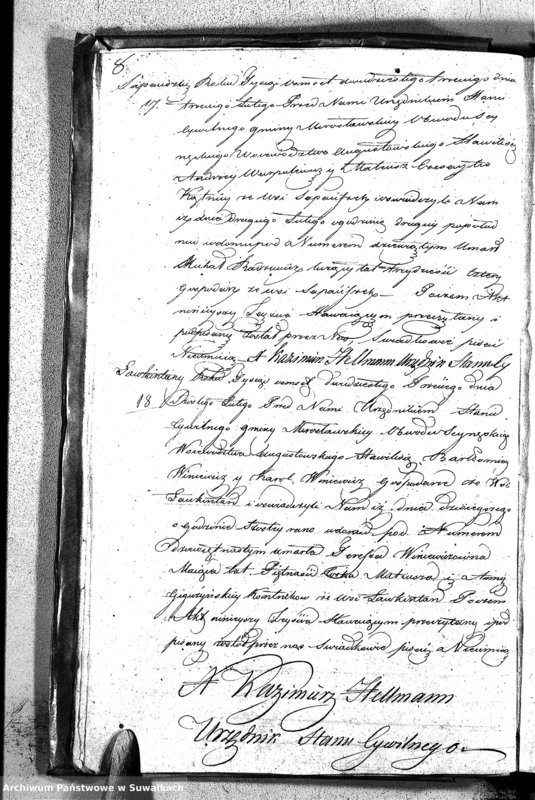 8.
Sapaiciszki Roku Tysiąc osmset dwudziestego trzeciego dnia
17. trzeciego Lutego Przed Nami Urzędnikiem Stanu
Cywilnego gminy Mirosławskiey Obwodu Sey
neńskiego Woiewództwa Augustowskiego Stawili się
Andrzey y Mateusz
Kątnicy ze Wsi i oswiadczyli Nam
iż dnia drugiego Lutego o godzinie drugiey popołud
niu w domu pod Numerem dziewiątym Umarł
Michał maiący lat trzydzieści cztery
gospodarz ze wsi Poczem Akt
ninieyszy Stawaiącym przeczytany i
podpisany został przez Nas, Swiadkowie pisać
Nieumieią X Kazimirz Hellmann Urzędnik Stanu Cy
Sawkinlany Roku Tysiąc osmset dwudziestego Trzeciego dnia
18 Lutego Przed Nami Urzędnikiem Stanu
Cywilnego gminy Mirosławskiey Obwodu Seyneńskiego
Woiewództwa Augustowskiego Stawili się Bartłomiey
Winiewicz y Karol Winiewicz gospodarze ze Wsi
Sawkinlan i oswiadczyli Nam iż dnia dzisieyszego
o godzinie Szostey rano w domu pod Numerem
Dziewiętnastym umarła Teressa Winiewiczowna
Maiąca lat Piętnaście Corka Mateusza i Anny
ze wsi Sawkinlan Poczem
Akt ninieyszy Stawaiącym przeczytany i pod
pisany został przez nas Swiadkowie pisać Nieumieią
X Kazimirz Hellmann
Urzędnik Stanu Cywilnego.
Archiwum Państwowe w Suwałkach